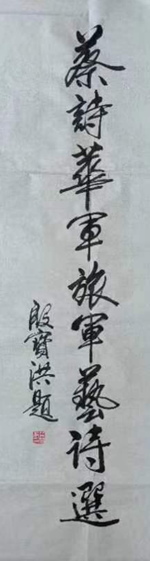 蔡詩華軍旅軍藝詩選
殷寶洪題